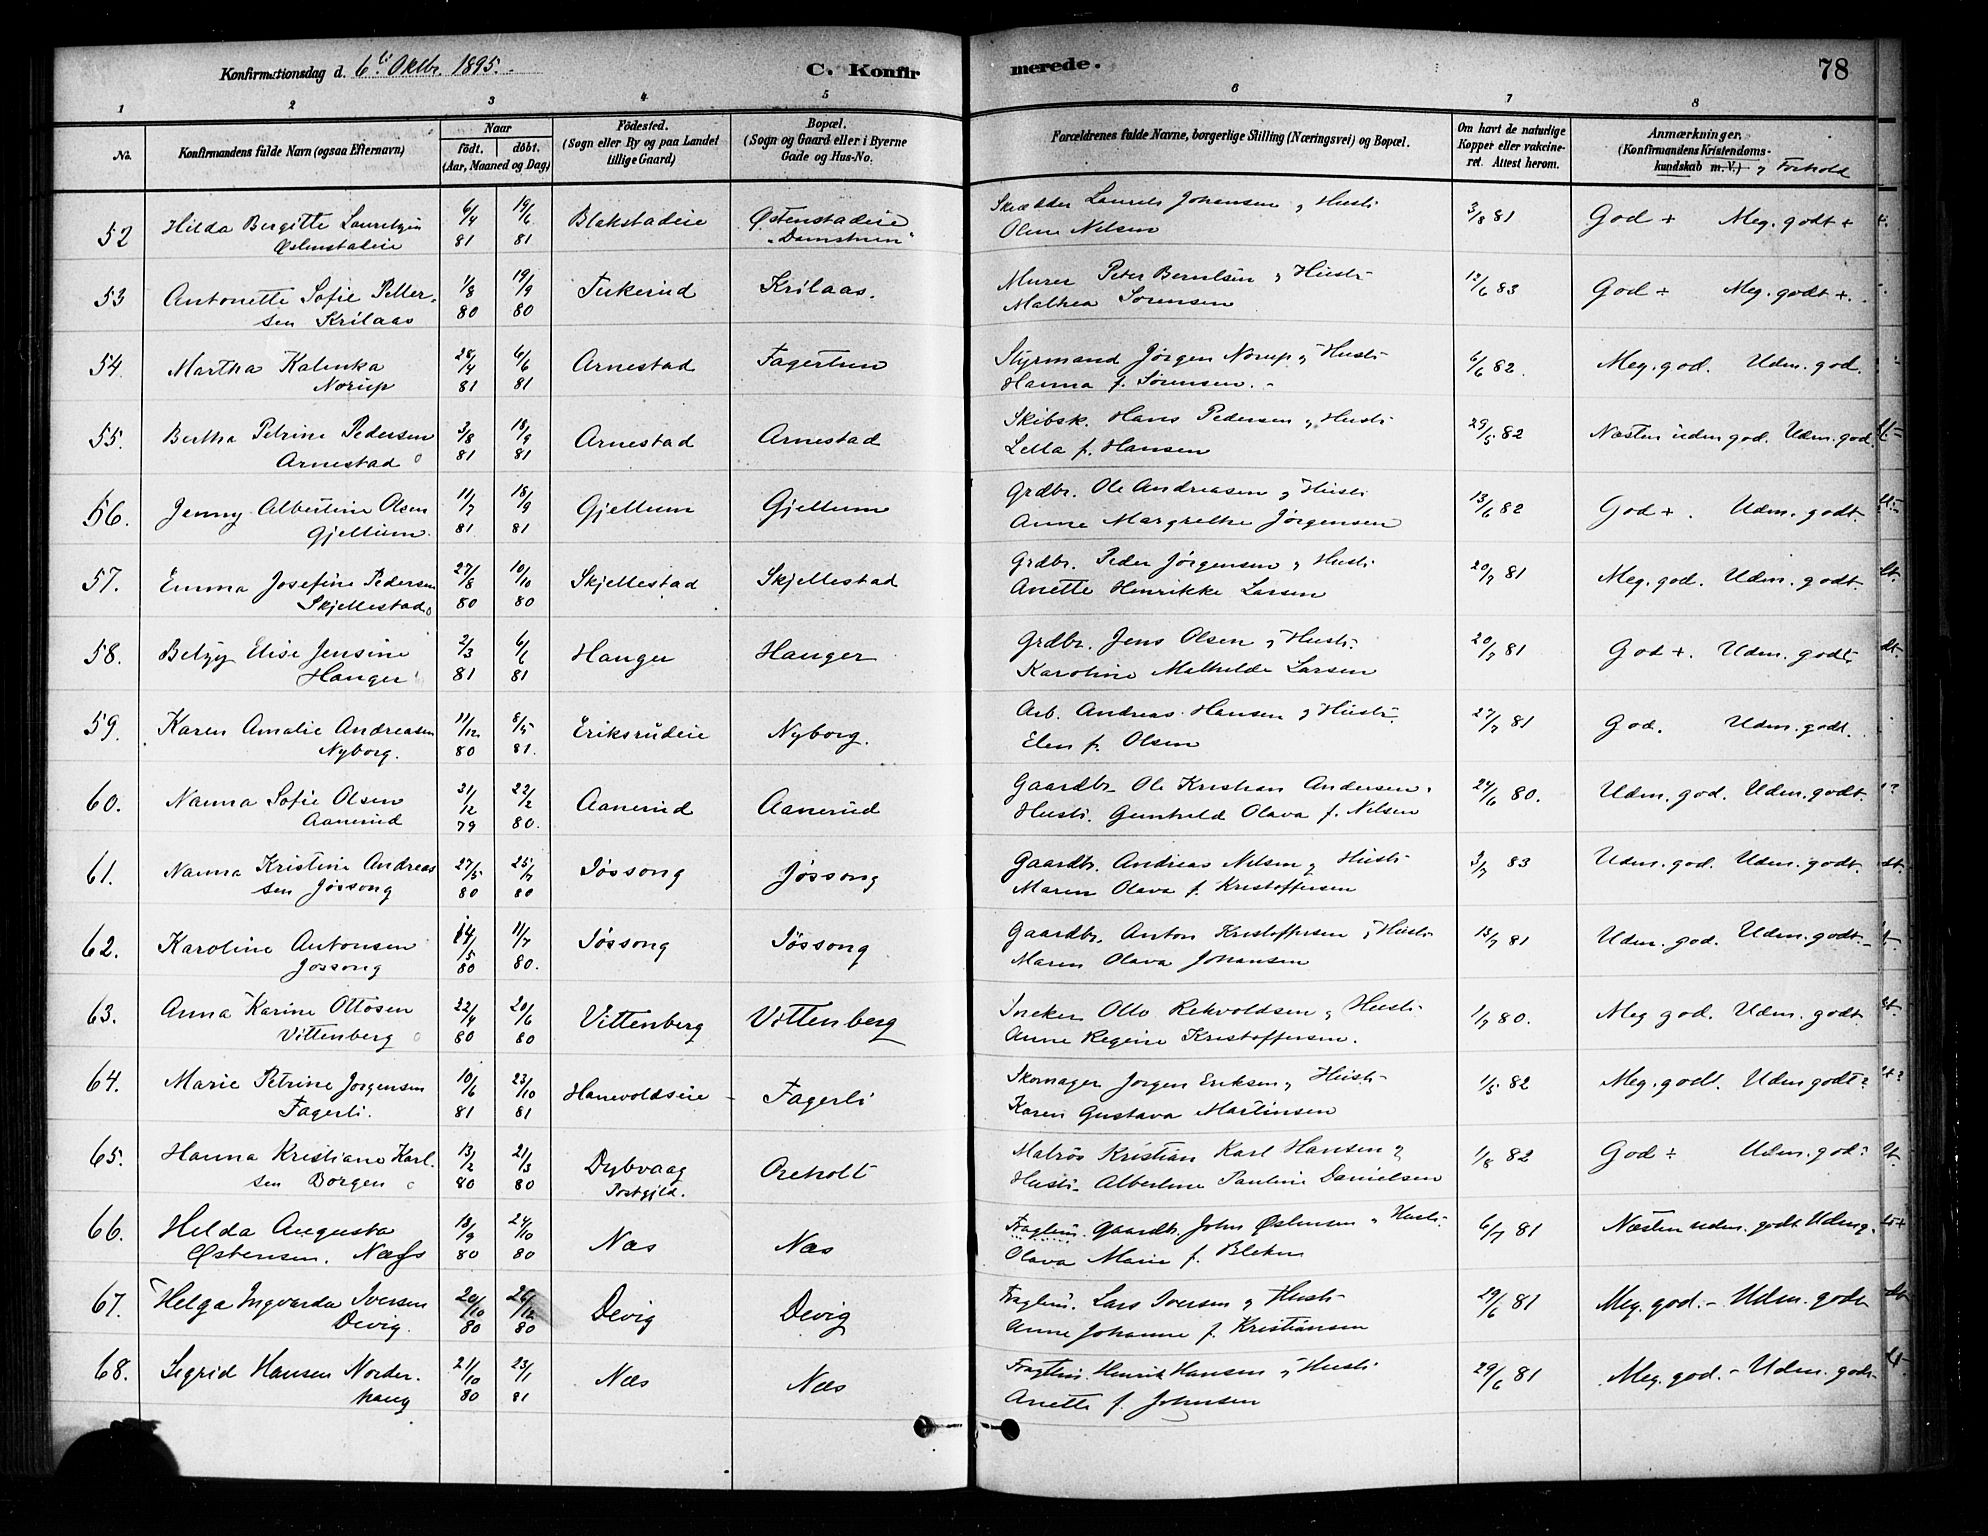 Konfirmationsdag d. 6te Oktbr. 1895.
C. Konfirmerede.
78
1 2 3 4 5 6 7 8
No. Konfirmandens fulde Navn (ogsaa Efternavn) Naar født. døbt. (Aar, Maaned og Dag) Fødested. (Sogn eller By og paa Landet tillige Gaard) Bopæl. (Sogn og Gaard eller i Byerne Gade og Hus-No. Forældrenes fulde Navne, borgerlige Stilling (Næringsvei) og Bopæl. Om havt de naturlige Kopper eller vakcineret. Attest herom. Anmærkninger. (Konfirmandens Kristendomskundskab m. V.) og Forhold
52 Hilda Bergitte Lauretzen 6/4 19/6 Blakstadeie Østenstadeie Skrædder Laurits Johansen og Hustr. 3/8 81 God + Meg. godt +
Østenstadeie 81 81 "Damstuen" Oline Nilsen
53 Antonette Sofie Petter- 1/8 19/9 Tukerud Krilaas. Murer Peter Berntsen og Hustr. 12/6 83 God ÷ Meg. godt +.
sen Krilaas 80 80 Mathea Sørensen
54 Martha Kalinka 28/4 6/6 Arnestad Fagertun Styrmand Jørgen Norup og Hustr. 6/6 82. Meg. god. Udm. god.
Norup 81 81 Hanna f. Sørensen.
55. Bertha Petrine Pedersen 3/8 18/9 Arnestad Arnestad Skibsk. Hans Pedersen og Hustr. 29/5 82 Næsten udm god. Udm. god.
Arnestad 81 81 Letta f. Hansen
56. Jenny Albertine Olsen 11/7 18/9 Gjellum Gjellum Grdbr. Ole Andreasen og Hustr. 13/6 82 God +. Udm. godt.
Gjellum. 81 81 Anne Margrethe Jørgensen
57. Emma Josefine Pedersen 27/8 10/10 Skjellestad Skjellestad Grdbr. Peder Jørgensen og Hustr. 20/7 81 Meg. god. Udm. godt.
Skjellestad 80 80 Anette Henrikke Larsen
58. Betzy Elise Jensine 2/3 6/6 Hanger Hanger Grdbr. Jens Olsen og Hustr. 20/7 81 God +. Udm. godt.
Hanger 81 81 Karoline Mathilde Larsen
59. Karen Amalie Andreasen 11/12 8/5 Eriksrudeie Nyborg. Arb. Andreas Hansen og Hustr. 27/7 81 God. Udm. godt.
Nyborg. 80 81. Elen f. Olsen
60. Nanna Sofie Olsen 31/12 22/2 Aanerud Aanerud Gaardbr. Ole Kristian Andersen og 24/6 80. Udm. god. Udm. godt.
Aanerud 79 80. Hustr. Gunhild Olava f. Nilsen
61. Nanna Kristine Andreas 27/5 25/7 Jøssong Jøssong Gaardbr. Andreas Nilsen og Hustr. 3/7 83 Udm. god. Udm. godt.
sen Jøssong 80 80 Maren Olava f. Kristoffersen
62. Karoline Antonsen 14/5 11/7 Jøssong Jøssong Gaardbr. Anton Kristoffersen og Hustr. 13/7 81 Udm. god. Udm. godt.
Jøssong 80 80. Maren Olava Johansen
63. Anna Karine Ottosen 22/4 20/6 Vittenberg Vittenberg Sneker Otto Rehvoldsen og Hustr. 1/7 80. Meg god. Udm. godt.
Vittenberg 80 80 Anne Regine Kristoffersen.
64. Marie Petrine Jørgensen 10/6 23/10 Hanevoldseie Fagerli Skomager Jørgen Eriksen og Hustr. 1/5 82 Meg. godt. Udm godt?
Fagerli. 81 81 Karen Gustava Martinsen
65. Hanna Kristiane Karl- 13/2 21/3 Dybvaag Oreholt Matrøs Kristian Karl Hansen og 1/8 82 God ÷ Udm. god?
sen Borgen 80 80 Pstgjld. Hustr. Albertine Pauline Danielsen
66. Hilda Augusta 18/9 24/10 Næs Næs Fragtm. Gaardbr. John Østensen og Hustr. 6/7 81 Næsten udm. godt Udm g.
Østensen. Næss 80 80 Olava Marie f. Bleken
67. Helga Ingvarda Iversen 20/10 26/12 Devig Devig Fragtm. Lars Iversen og Hustr. 29/6 81 Meg. god. - Udm. godt
Devig. 80 80 Anne Johanne f. Kristiansen
68. Sigrid Hansen Norder- 21/10 23/1 Næs Næs Fragtm. Henrik Hansen og Hustr. 29/6 81 Meg. god. - Udm. godt.
haug 80 81 Anette f. Johnsen